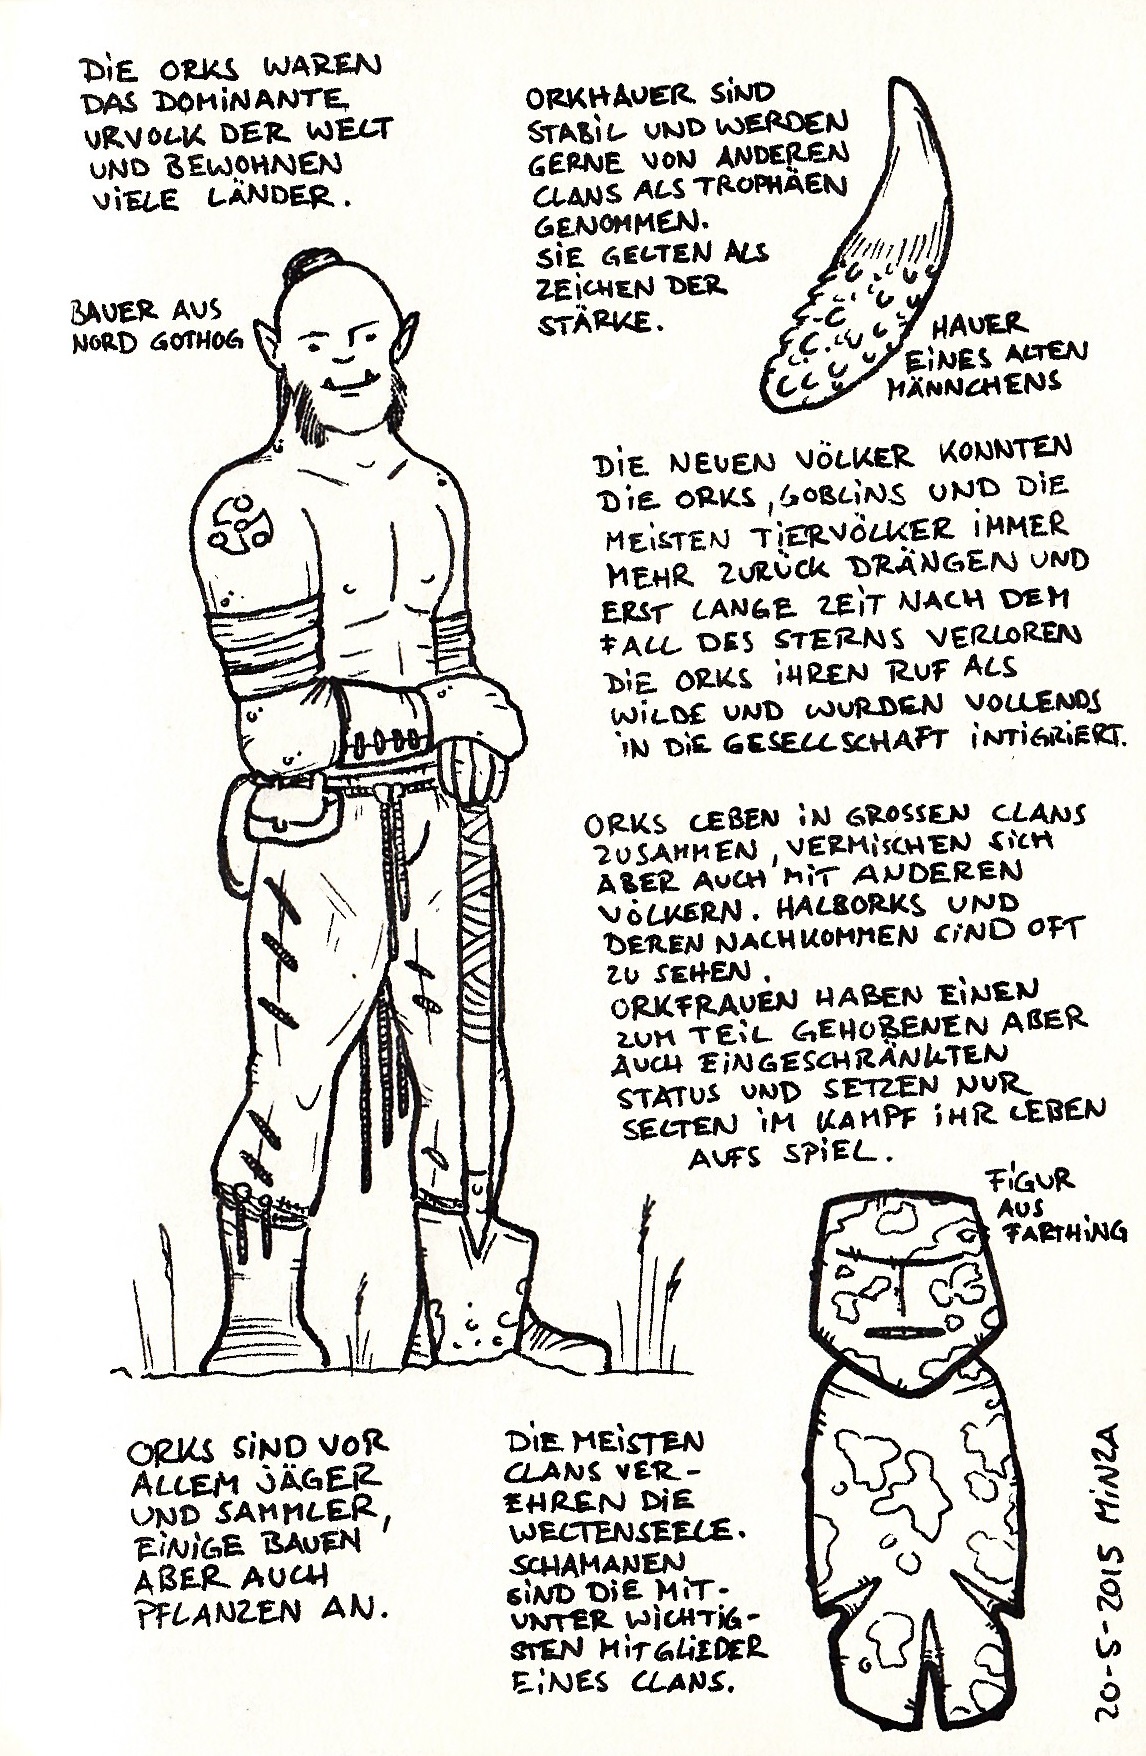 DIE ORKS WAREN
DAS DOMINANTE
URVOLK DER WELT
UND BEWOHNEN
VIELE LÄNDER.
BAUER AUS
NORD GOTHOG
ORKHAUER SIND
STABIL UND WERDEN
GERNE VON ANDEREN
CLANS ALS TROPHÄEN
GENOMMEN.
SIE GELTEN ALS
ZEICHEN DER
STÄRKE.
HAUER
EINES ALTEN
MÄNNCHENS
DIE NEUEN VÖLKER KONNTEN
DIE ORKS, GOBLINS UND DIE
MEISTEN TIERVÖLKER IMMER
MEHR ZURÜCK DRÄNGEN UND
ERST LANGE ZEIT NACH DEM
FALL DES STERNS VERLOREN
DIE ORKS IHREN RUF ALS
WILDE UND WURDEN VOLLENDS
IN DIE GESELLSCHAFT INTIGRIERT.
ORKS LEBEN IN GROSSEN CLANS
ZUSAMMEN, VERMISCHEN SICH
ABER AUCH MIT ANDEREN
VÖLKERN. HALBORKS UND
DEREN NACHKOMMEN SIND OFT
ZU SEHEN.
ORKFRAUEN HABEN EINEN
ZUM TEIL GEHOBENEN ABER
AUCH EINGESCHRÄNKTEN
STATUS UND SETZEN NUR
SELTEN IM KAMPF IHR LEBEN
AUFS SPIEL.
FIGUR
AUS
FARTHING
ORKS SIND VOR
ALLEM JÄGER
UND SAMMLER,
EINIGE BAUEN
ABER AUCH
PFLANZEN AN.
DIE MEISTEN
CLANS VER-
EHREN DIE
WELTENSEELE.
SCHAMANEN
SIND DIE MIT-
UNTER WICHTIG-
STEN MITGLIEDER
EINES CLANS.
20-5-2015 MINZA